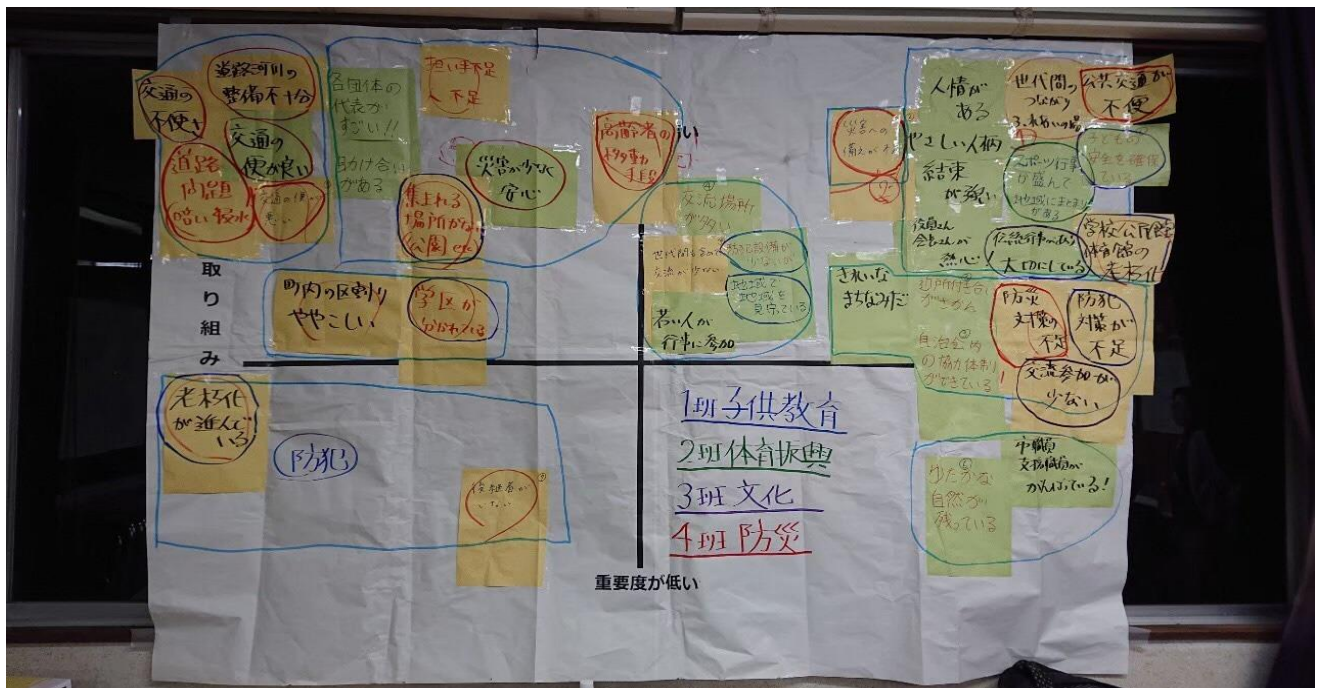 交通の
不便さ
道路河川の
整備不十分
交通の
便が良い
道路
問題
暗い浸水
交通の便が
悪い
各団体の
代表が
すごい!!
助け合い
がある
担い手不足
不足
災害が少なく
安心
集まれる
場所がない
公園etc
高齢者の
移動
手段
取り組み
町内の区割り
ややこしい
学区が
分かれている
交流場所
が多い
世代間を含め
交流が少ない
防犯設備が
少ない
地域で
地域を
見守っている
若い人が
行事に参加
災害への
人情が
ある
やさしい人柄
結束
が強い
役員さん
会長さんが
熱心
世代間の
つながり
ふれあいの場
公共交通が
不便
子どもの
安全を確保
している
スポーツ行事
が盛んで
地域にまとまり
がある
伝統行事がある
大切にしている
学校公民館
体育館の
老朽化
きれいな
まちなみだ
近所付き合い
がさかん
自治会内
の協力体制
ができている
防災
対策の
不足
防犯
対策が
不足
交流参加が
少ない
老朽化
が進んで
いる
防犯
後継者が
いない
1班子供教育
2班体育振興
3班文化
4班防災
ゆたかな
自然が
残っている
市職員
支所職員が
がんばっている!
重要度が低い